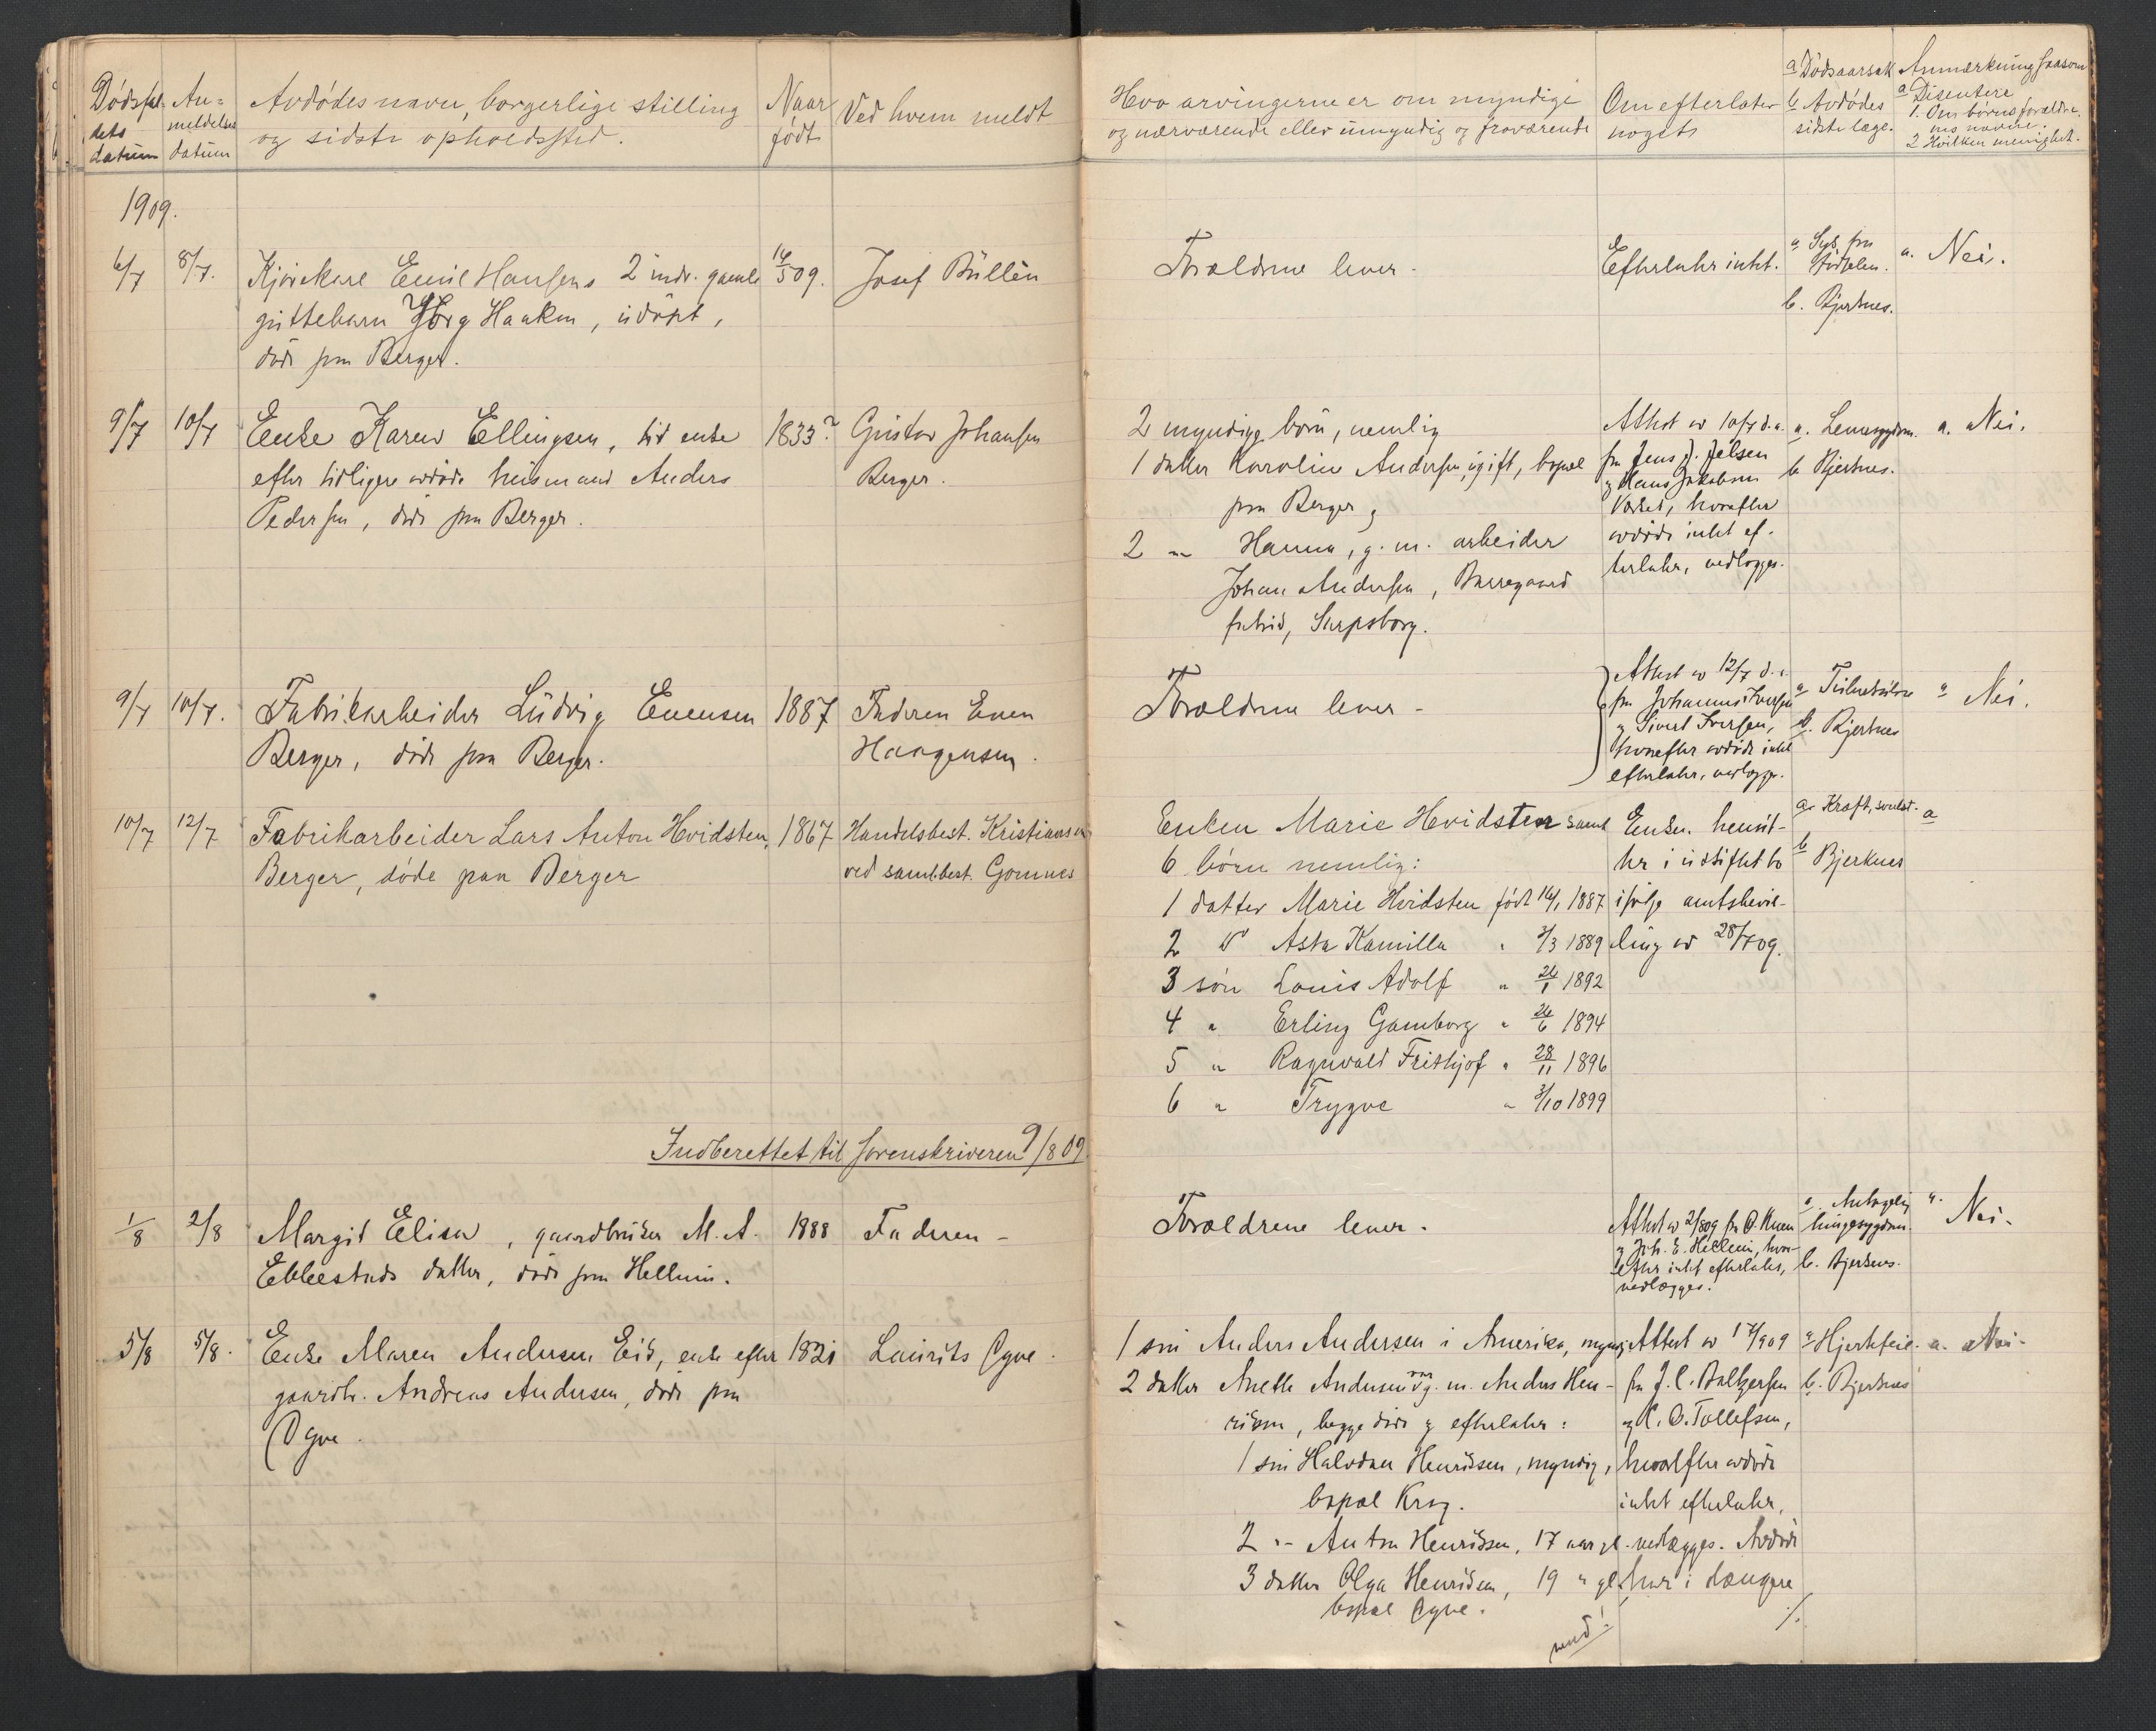 Dødsfal-
dets
datum
An-
meldelses
datum
Avdødes navn, borgerlige stilling
og sidste opholdssted.
Naar
født
Ved hvem meldt
Hvo arvingerne er om myndige
og nærværende eller umyndig og fraværende
Om efterlater
noget
a Dødsaarsak
b Avdødes
sidste læge.
Anmærkning saasom
a Disentere
1. Om børns foræld-
res navne.
2 Hvilken menighet.
1909.
6/7 8/7. Kjørekarl Emil Hansens 2 mdr. gamle 16/5 09. Josef Büllen
guttebarn Georg Haakon, udøpt,
døde paa Berger.
Forældrene lever -
Efterlater intet.
a Syk fra
fødselen.
b. Bjerknes.
a. Nei.
9/7 10/7 Enke Karen Ellingsen, hit enke 1833? Gustav Johansen
efter tidligere avdøde husmand Anders Berger.
Pedersen, døde paa Berger.
2 myndige børn, nemlig
1 datter Karoline Andersen, ugift, bopæl
paa Berger og
2 " Hanna, g. m. arbeider
Johan Andersen, Borregaard
fabrik, Sarpsborg.
Attest av 10/7 d.a.
fra Jens J. Jelsen
og Hans Jakobsen
, hvorefter
avdøde intet ef-
terlater, vedlægges.
a. Lungesygdom.
b Bjerknes.
a. Nei.
9/7 10/7. Fabrikarbeider Ludvig Evensen 1887 Faderen Even
Berger, døde paa Berger. Haagensen.
Forældrene lever -
Attest av 12/7 d.a.
fra Johannes Iversen
og Sivert Iversen,
hvorefter avdøde intet
efterlater, vedlægges.
a Tuberkulose
b. Bjerknes
a Nei.
10/7 12/7 Fabrikarbeider Lars Anton Hvidsten, 1867 Handelsbest. Kristiansen
Berger, døde paa Berger ved samlbest. Gomnes
Enken Marie Hvidsten samt
6 børn nemlig:
1 datter Marie Hvidsten født 14/1 1887
2 " Asta Kamilla " 3/3 1889
3 søn Louis Adolf " 24/1 1892
4 " Erling Gamborg " 26/6 1894
5 " Ragnvald Frithjof " 28/11 1896
6 " Trygve " 3/10 1899
Enken hensit-
ter i uskiftet bo
ifølge amtsbevil-
ling av 28/7 09.
a. Kræft, svulst.
b Bjerknes
a
Indberettet til sorenskriveren 9/8 09
1/8 2/8 Margit Elisa, gaardbruker M. A. 1888 Faderen -
Ebbestads datter, døde paa Hellum.
Forældrene lever.
Attest av 2/8 09 fra O. Kruen
og Joh. E. Hellum, hvor-
efter intet efterlates,
vedlægges.
a. Antagelig
lungesygdom.
b. Bjerknes.
a. Nei.
5/8 5/8. Enke Maren Andersen Eid, enke efter 1821 Laurits Øgve.
gaardbr. Andreas Andersen, døde paa
Øgve.
1 søn Anders Andersen i Amerika, myndig
2 datter Anette Andersen var g. m. Anders Hen-
riksen, begge døde og efterlater:
1 søn Halvdan Henriksen, myndig,
bopæl Krog.
2 " Anton Henriksen, 17 aar gl.
3 datter Olga Henriksen, 19 " gl.
bopæl Øgve.
Attest av 17/8 09
fra J. C. Baltzersen
og K. O. Tollefsen,
hvorefter avdøde
intet efterlater,
vedlægges. Avdøde
har i længere
./.
vend!
a Hjertefeil.
b. Bjerknes
a. Nei.